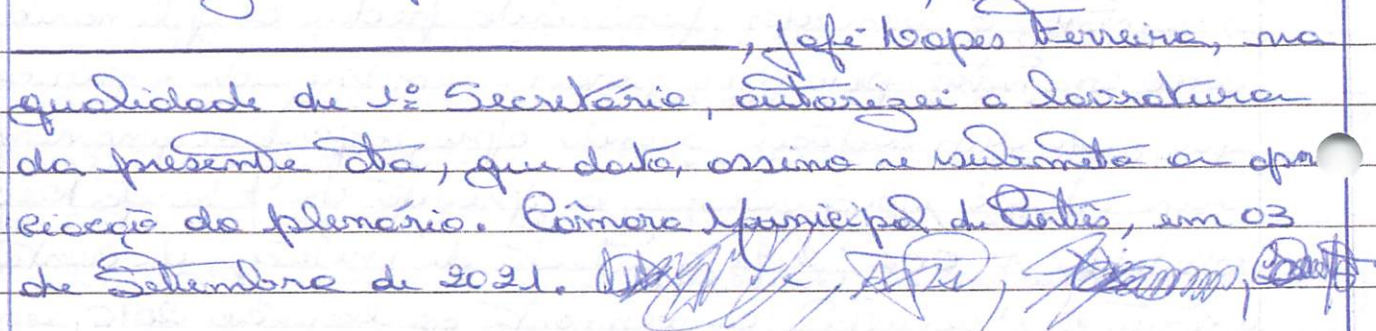 , José Lopes Ferreira, na
qualidade de 1º Secretário, autorizei a lavratura
da presente ata, que dato, assino e submeto a apre
ciação do plenário. Câmara Municipal de Cortês, em 03
de Setembro de 2021.